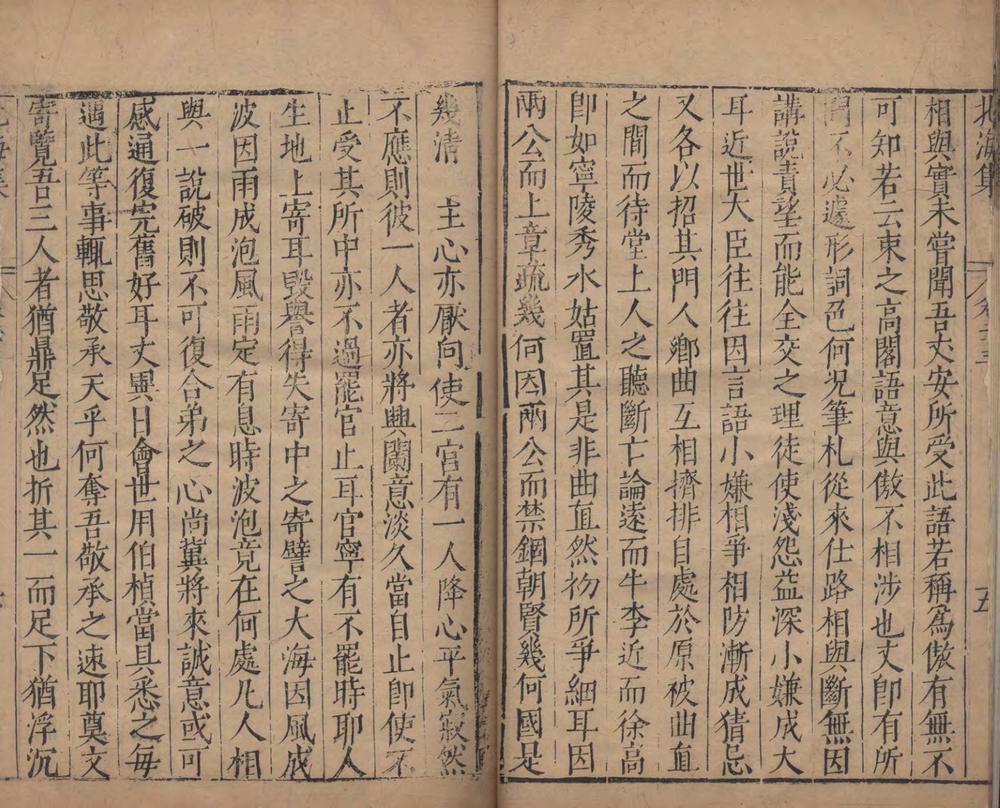 北海集 五
相與實未嘗聞吾丈安所受此語若稱為傲有無不
可知若云束之高閣語意與傲不相涉也丈卽有所
聞不必遽形詞色何況筆札從來仕路相與斷無因
講說責望而能全交之理徒使淺怨益深小嫌成大
耳近世大臣往往因言語小嫌相爭相防漸成猜忌
又各以招其門人鄉曲互相擠排自處於原被曲直
之間而待堂上人之聽斷亡論遠而牛李近而徐高
卽如寧陵秀水姑置其是非曲直然初所爭細耳因
兩公而上章疏幾何因兩公而禁錮朝賢幾何國是
幾淆 主心亦厭向使二官有一人降心平氣寂然
不應則彼一人者亦將興闌意淡久當自止卽使不
止受其所中亦不過罷官止耳官寧有不罷時耶人
生地上寄耳毀譽得失寄中之寄譬之大海因風成
波因雨成泡風雨定有息時波泡竟在何處凡人相
與一說破則不可復合弟之心尚冀將來誠意或可
感通復完舊好耳丈異日會世用伯楨當具悉之每
遇此等事輒思敬承天乎何奪吾敬承之速耶奠文
寄覽吾三人者猶鼎足然也折其一而足下猶浮沉